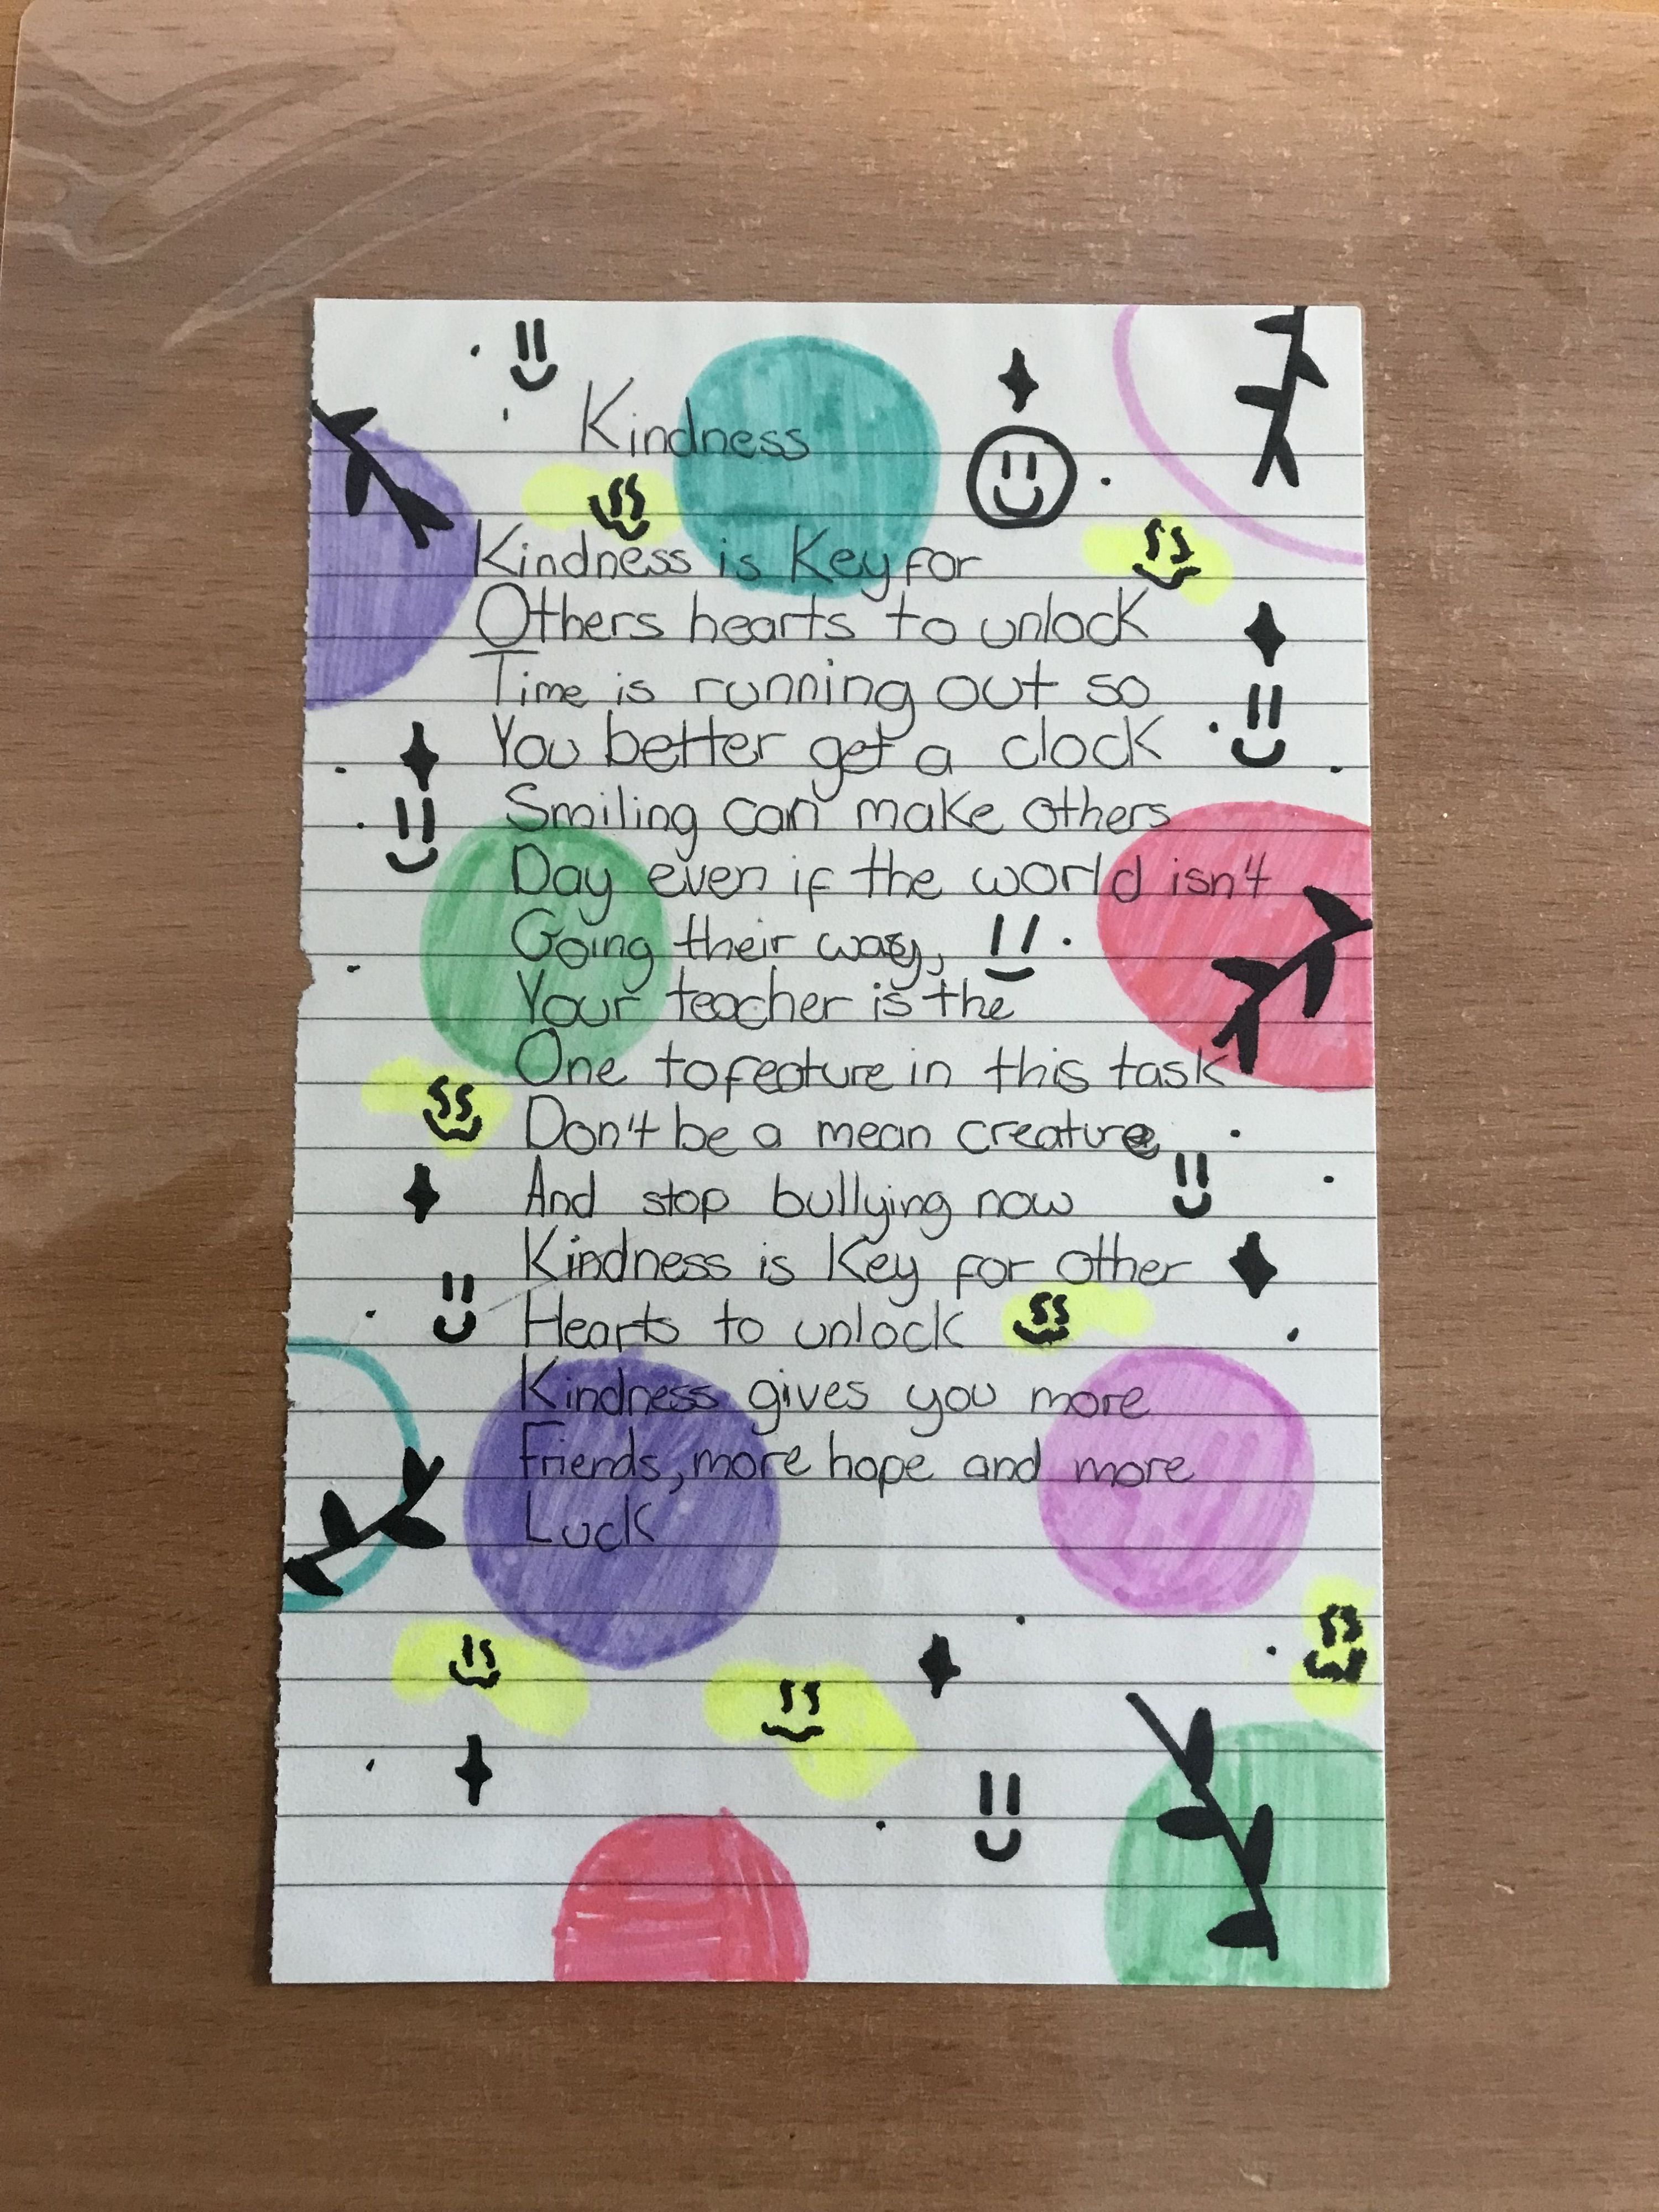 Kindness
Kindness is Key for
Others hearts to unlock
Time is running out so
You better get a clock
Smiling can make others
Day even if the world isn't
Going their way,
Your teacher is the
One to feature in this task
Don't be a mean creature
And stop bullying now
Kindness is Key for other
Hearts to unlock
Kindness gives you more
Friends, more hope and more
Luck